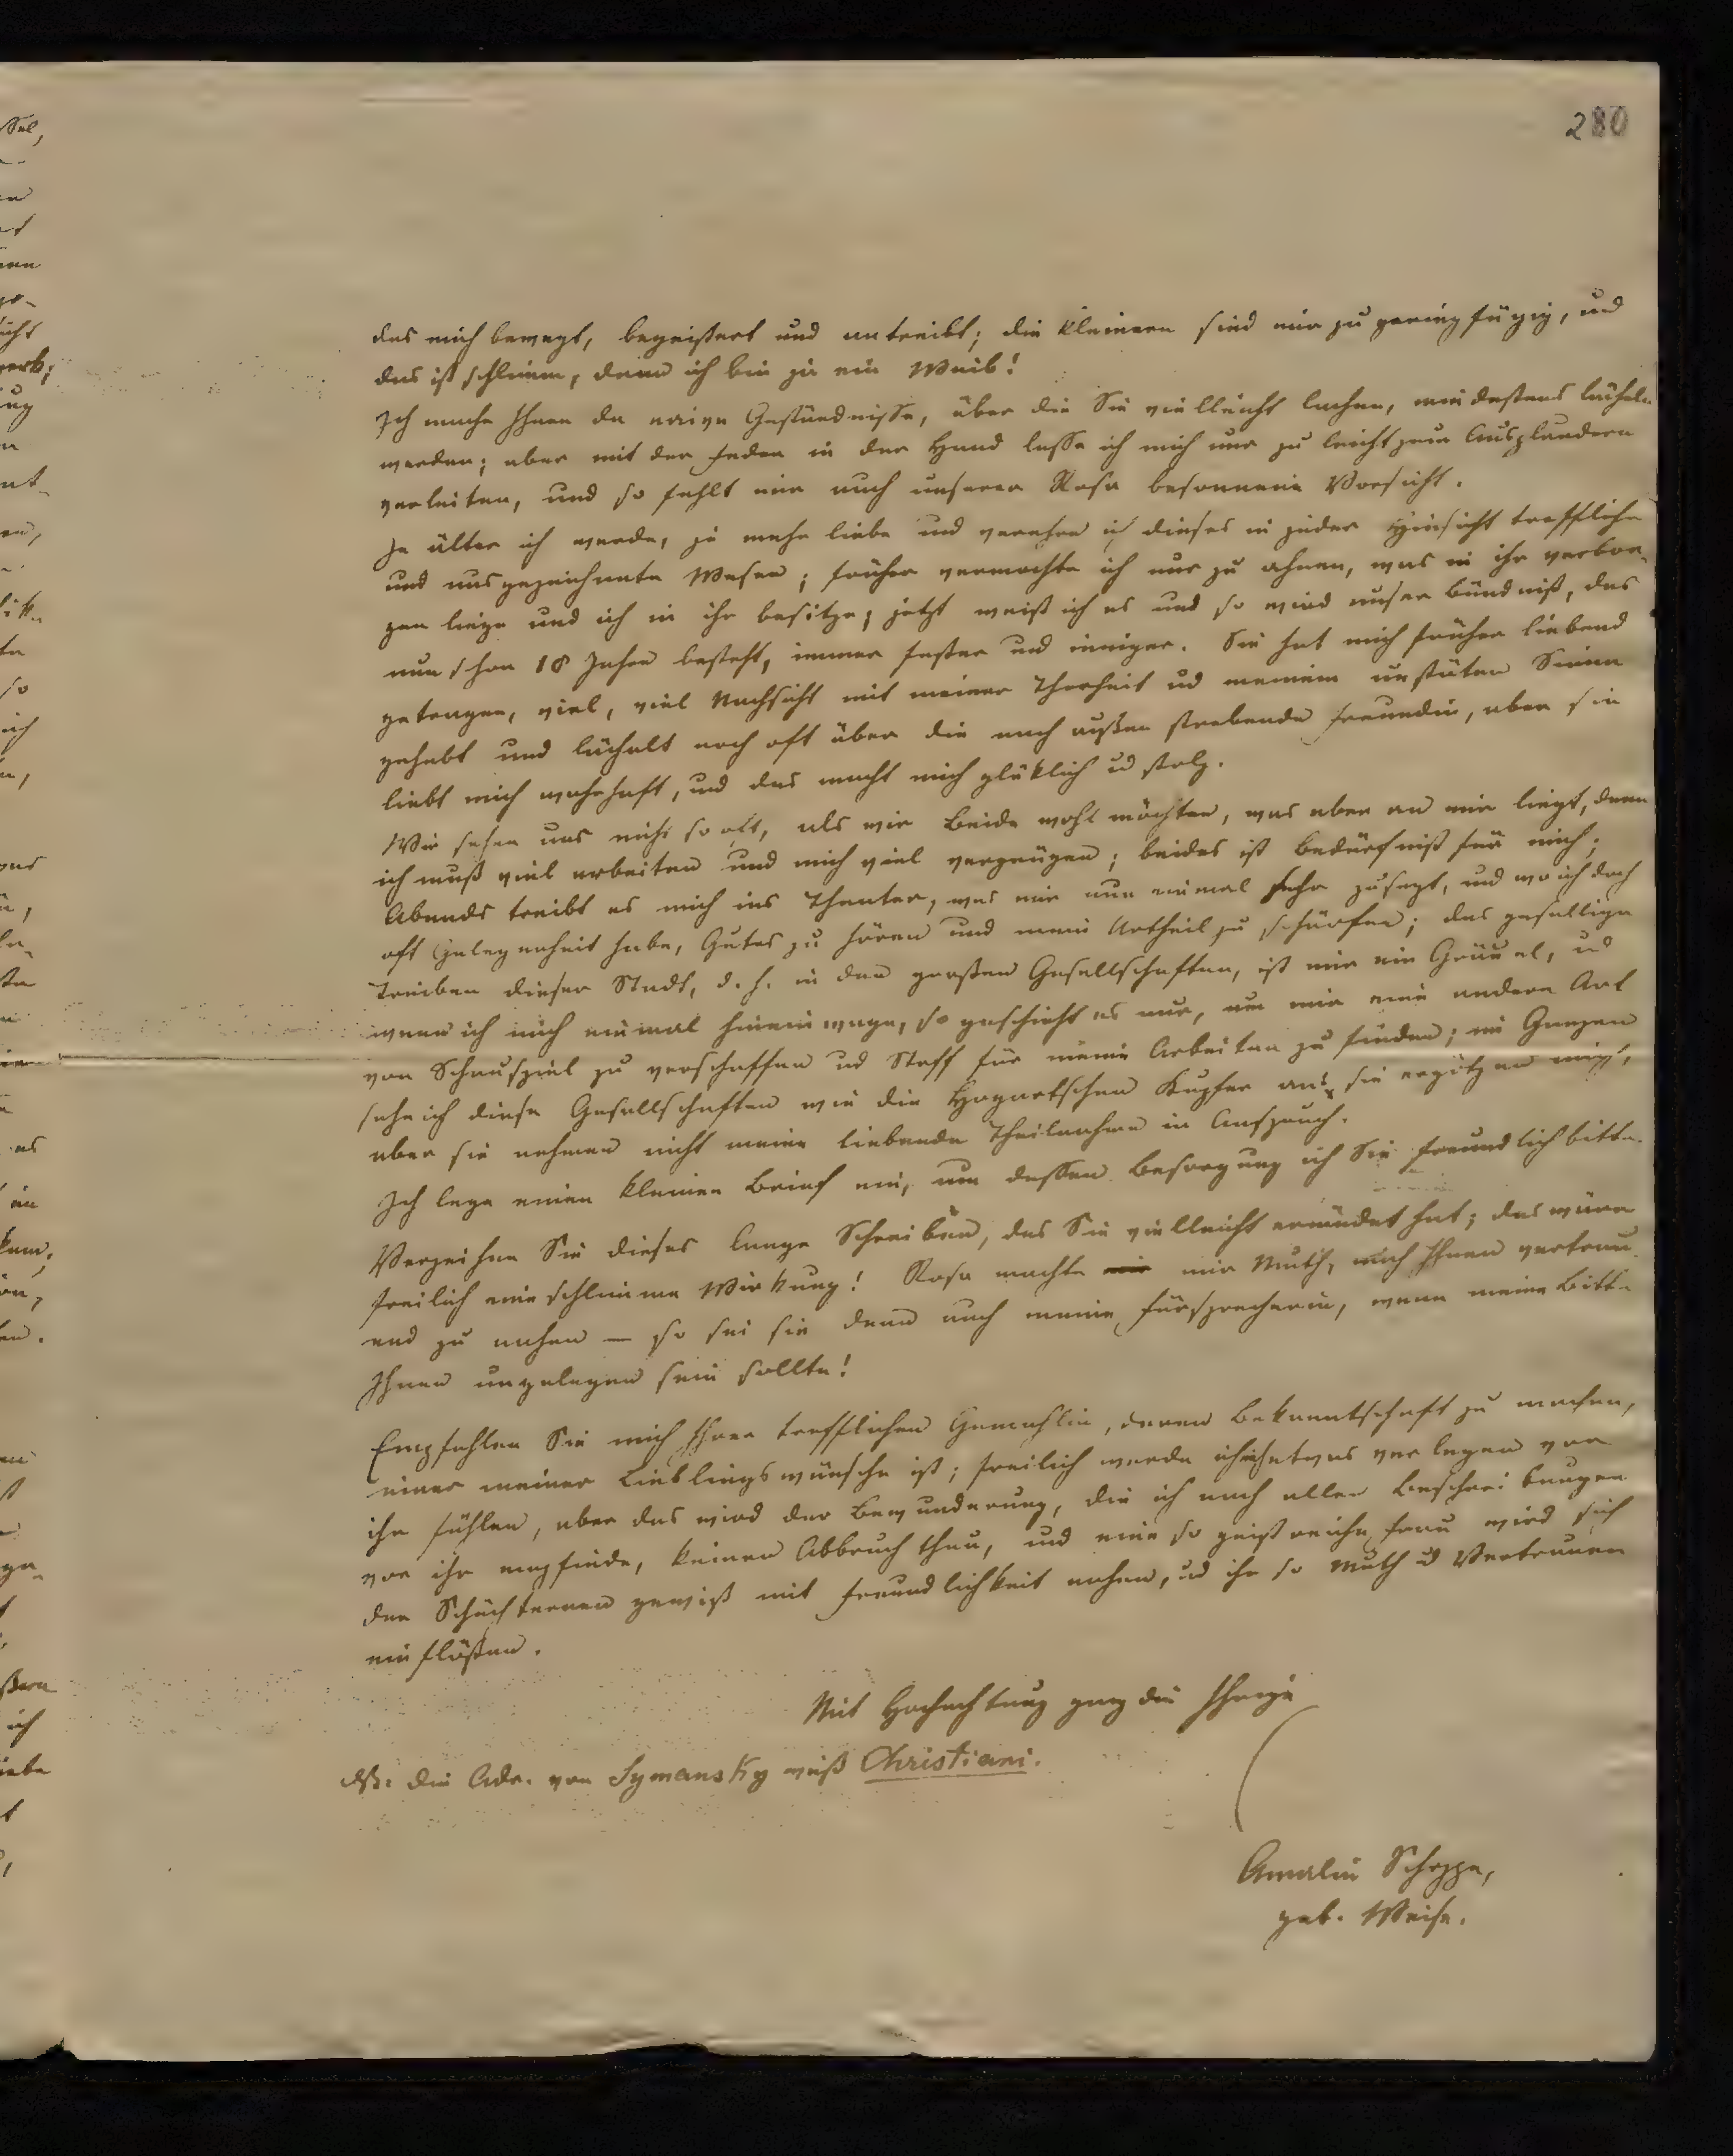 280
das mich bewegt, begeistert und antreibt; die kleinern sind mir zu geringfügig, und
das ist schlimm, denn ich bin ja ein Weib!
Ich mache Ihnen da naive Geständnisse, über die Sie vielleicht lachen, mindestens lächeln
werden; aber mit der Feder in der Hand lasse ich mich nur zu leicht zum Ausplaudern
verleiten, und so fehlt mir auch unserer Rosa besonnene Vorsicht.
Je älter ich werde, je mehr liebe und verehre ich dieses in jeder Hinsicht treffliche
und ausgezeichnete Wesen; früher vermochte ich nur zu ahnen, was in ihr verbor-
gen liege und ich in ihr besitze, jetzt weiß ich es und so wird unser Bündniß, das
nun schon 18 Jahre besteht, immer fester und inniger. Sie hat mich früher liebend
getragen, viel, viel Nachsicht mit meiner Thorheit ud meinem unstäten Sinne
gehabt und lächelt noch oft über die nach außen strebende Freundin, aber sie
liebt mich wahrhaft, und das macht mich glüklich ud stolz.
Wir sehen uns nicht so oft, als wir Beide wohl möchten, was aber an mir liegt, denn
ich muß viel arbeiten und mich viel vergnügen; beides ist Bedürfniß für mich;
Abends treibt es mich ins Theater, was mir nun einmal sehr zusagt, und wo ich doch
oft Gelegenheit habe, Gutes zu hören und mein Urtheil zu schärfen; das gesellige
Treiben dieser Stadt, d. h. in den großen Gesellschaften, ist mir ein Gräuel, ud
wenn ich mich einmal hineinwage, so geschieht es nur, um mir eine andere Art
von Schauspiel zu verschaffen ud Stoff für meine Arbeiten zu finden; im Ganzen
sehe ich diese Gesellschaften wie die Hogartschen Kupfer an; sie ergötzen mich,
aber sie nehmen nicht meine liebende Theilnahme in Anspruch.
Ich lege einen kleinen Brief ein, um dessen Besorgung ich Sie freundlich bitte.
Verzeihen Sie dieses lange Schreiben, das Sie vielleicht ermüdet hat; das wäre
freilich eine schlimme Wirkung! Rosa machte mir Muth, mich Ihnen vertrau-
end zu nahen — so sei sie denn auch meine Fürsprecherin, wenn meine Bitte
Ihnen ungelegen sein sollte!
Empfehlen Sie mich Ihrer trefflichen Gemahlin, deren Bekanntschaft zu machen,
einer meiner Lieblingswünsche ist; freilich werde ich etwas verlegen vor
ihr fühlen, aber das wird der Bewunderung, die ich nach allen Beschreibungen
vor ihr empfinde, keinen Abbruch thun, und eine so geistreiche Frau wird sich
der Schüchternen gewiß mit Freundlichkeit nahen, ud ihr so Muth ud Vertrauen
einflößen.
Mit Hochachtung ganz die Ihrige
NS. Die Adr. von Symansky weiß Christiani.
Amalia Schoppe,
geb. Weise.